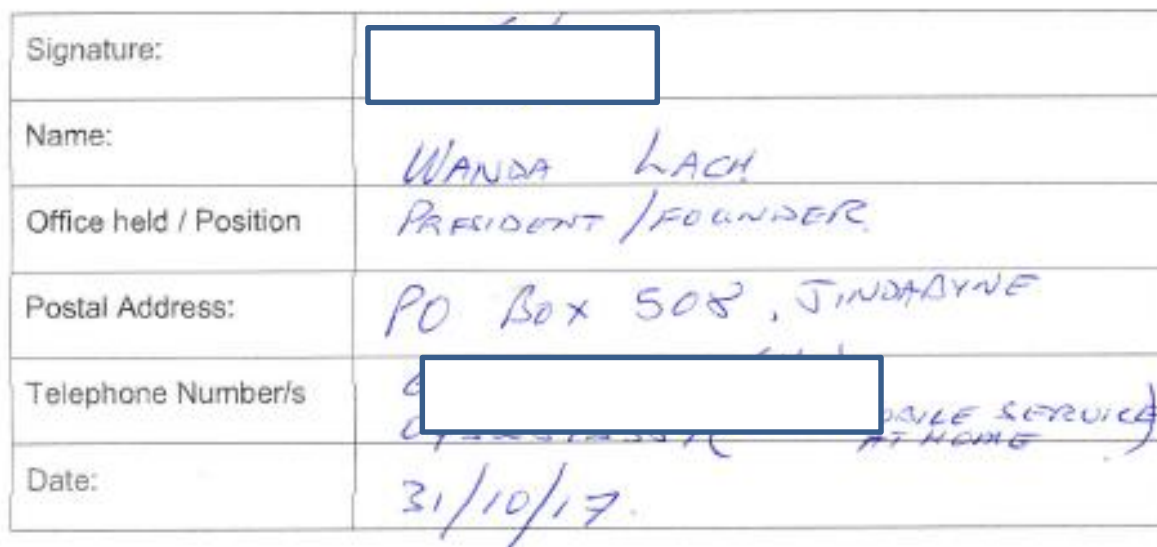 Signature:
Name: WANDA LACH
Office held / Position PRESIDENT / FOUNDER
Postal Address: PO BOX 508, JINDABYNE
Telephone Number/s
SERVICE
AT HOME )
Date: 31/10/17.